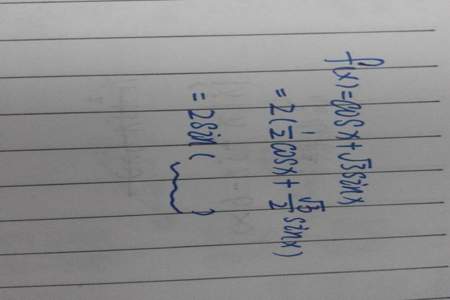 f(x)=cosx+√3sinx
=2(1/2cosx+√3/2sinx)
=2sin( )